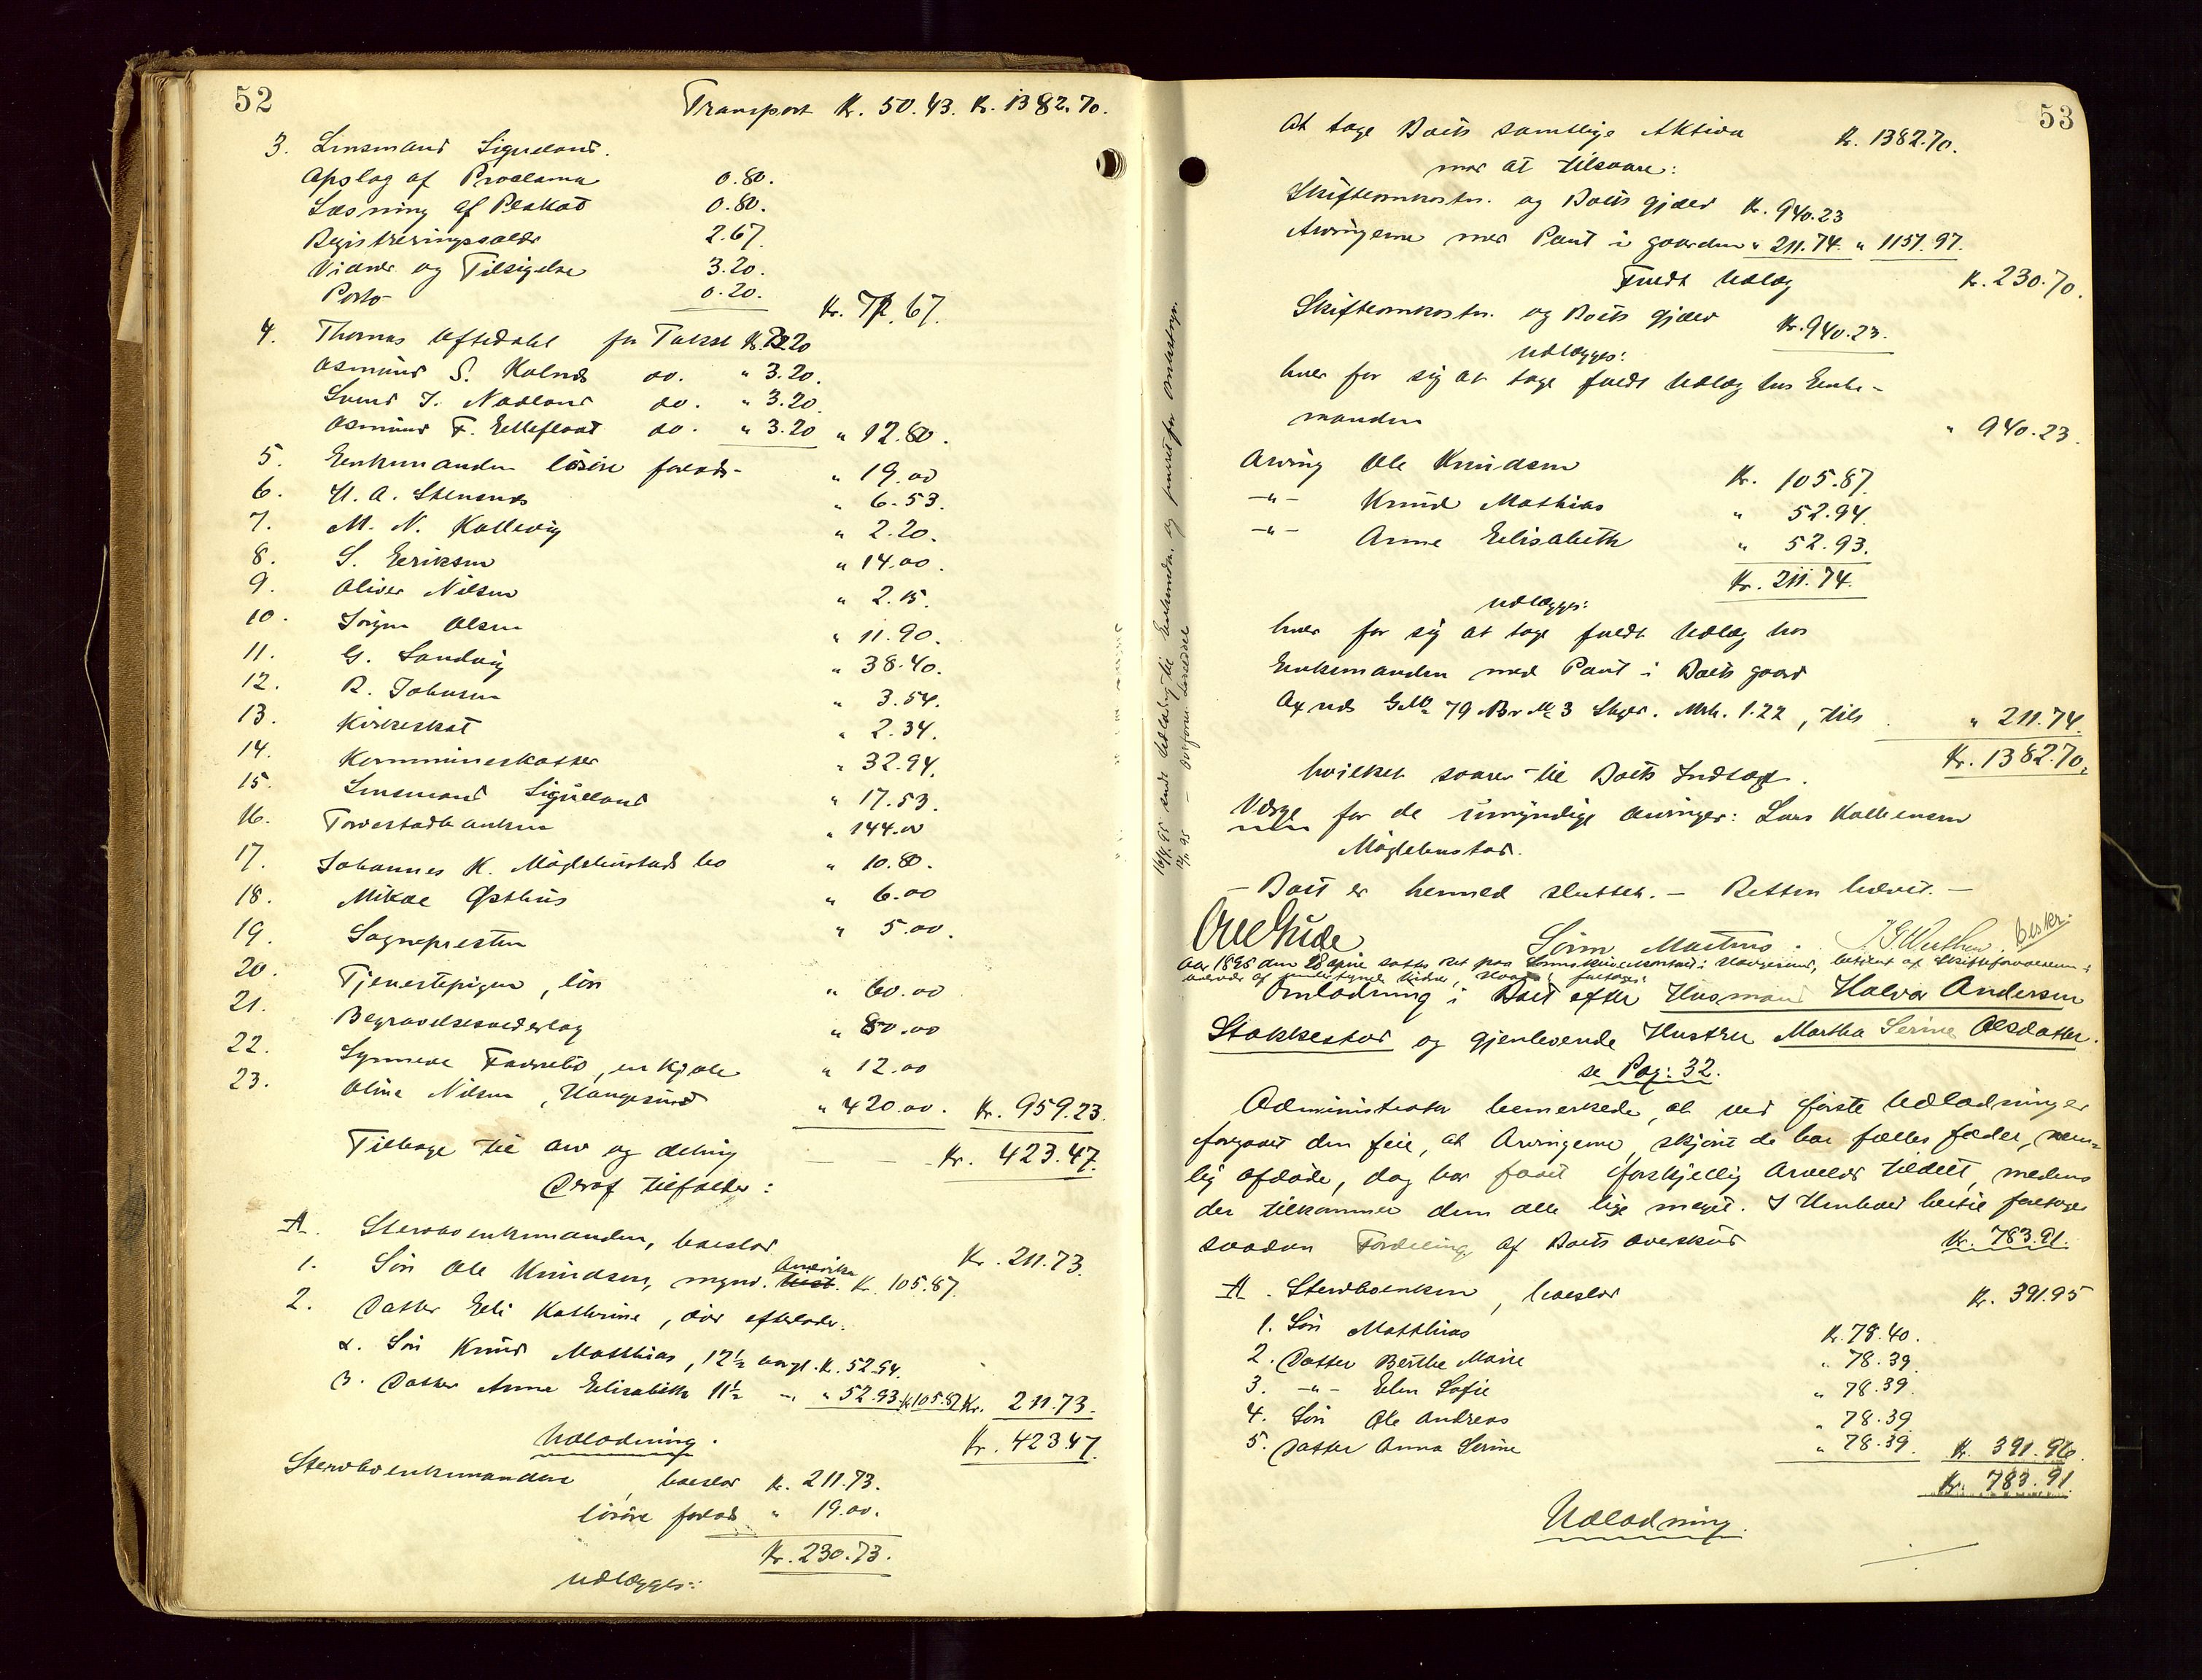 52
Transport Kr. 50.43. Kr. 1382.70.
3. Lensmand Sigvaland.
Opslag af Proclama 0.80.
Læsning af Plakat 0.80.
Registreringssalær 2.67.
Vidner og Tilsigelse 3.20.
Porto 0.20. Kr. 7.67.
4. Thomas Aftedahl for Takst Kr. 3.20
Osmund S. Kolnes do. " 3.20.
Svend J. Nadland do. " 3.20.
Osmund F. Eelleflaat do. " 3.20 " 12.80.
5. Enkemanden løsøre forlods " 19.00
6. H. A. Stensnes " 6.53.
7. M. N. Kallevig " 2.20.
8. S. Eeriksen " 14.00.
9. Oliver Nilsen " 2.15.
10. Jørgen Olsen " 11.90.
11. G. Sandvig " 38.40.
12. R. Johnsen " 3.54.
13. Kirkeskat " 2.34.
14. Kommuneskatter " 32.94.
15. Lensmand Sigvaland " 17.53.
16. Torvestadbanken " 144.00
17. Johannes K. Møglebustads bo " 10.80.
18. Mikal Østhus " 6.00
19. Sognepresten " 5.00.
20. Tjenestepigen, løn " 60.00
21. Begravelsesvederlag " 80.00
22. Synneve, en Kjole " 12.00
23. Oline Nilsen, Haugesund " 420.00. Kr. 959.23.
Tilbage til arv og deling — — Kr. 423.47.
Deraf tilfalder:
A. Stervboenkemanden, boeslod Kr. 211.73.
1. Søn Ole Knudsen, mynd. Amerika Kr. 105.87.
2. Datter Eli Kathrine, død efterlader:
α. Søn Knud Matthias, 12½ aargl. Kr. 52.94.
β. Datter Anne Elisabeth 11½ -"- " 52.93. Kr. 105.87 Kr. 211.73.
Udlodning. Kr. 423.47.
Stervboenkemanden, boeslod Kr. 211.73.
løsøre forlods " 19.00.
Kr. 230.73.
udlægges:
16/11 95 sendt Udlodning til Enkemanden og
53
At tage Boets samtlige Aktiva Kr. 1382.70.
mod at tilsvare:
Skifteomkostn. og Boets gjæld Kr. 940.23
Arvingerne mod Pant i gaarden " 211.74. " 1151.97.
Fuldt Udlæg Kr. 230.70.
Skifteomkostn. og Boets gjæld Kr. 940.23.
udlægges:
hver for sig at tage fuldt Udlæg hos Enke-
manden " 940.23.
Arving Ole Knudsen Kr. 105.87.
-"- Knud Mathias " 52.94.
-"- Anne Eelisabeth " 52.93.
Kr. 211.74.
udlægges:
hver for sig at tage fuldt Udlæg hos
Enkemanden med Pant i Boets gaard
GNo 79 BrNo 3 Skyld. Mrk. 1.22, tils " 211.74.
Kr. 1382.70.
hvilket svarer til Boets Indtægt.
Værge for de umyndige arvinger: Lars
Møglebustad.
— Boet er hermed sluttet. — Retten hævet. —
Ove Gude Søren Martens. Beskr:
Aar 1895 den 28 april sattes ret paa Sorenskriverkontoret i Haugesund, betjent af Skifteforvalteren i
overvær af undertegnede Vidner, Hvor foretoges:
Omlodning i Boet efter Husmand Halvor Andersen
Stokkestad og gjenlevende Hustru Martha Serine Olsdatter.
se Pag: 32.
Administrator bemerkede, at ved første Udlodning er
forgaaet den feil, at Arvingerne, skjønt de har fælles fader, nem-
lig afdøde, dog har faaet forskjellig Arvelod tildelt, medens
der tilkommer dem alle lige meget. I Henhold hertil foretoges
saadan Fordeling af Boets Overskud Kr. 783.91.
A. Stervboenken, boeslod Kr. 391.95
1. Søn Matthias Kr. 78.40.
2. Datter Berthe Marie " 78.39.
3. -"- Elen Sofie " 78.39.
4. Søn Ole Andreas " 78.39.
5. Datter Anna Serine " 78.39. Kr. 391.96.
Kr. 783.91.
Udlodning.